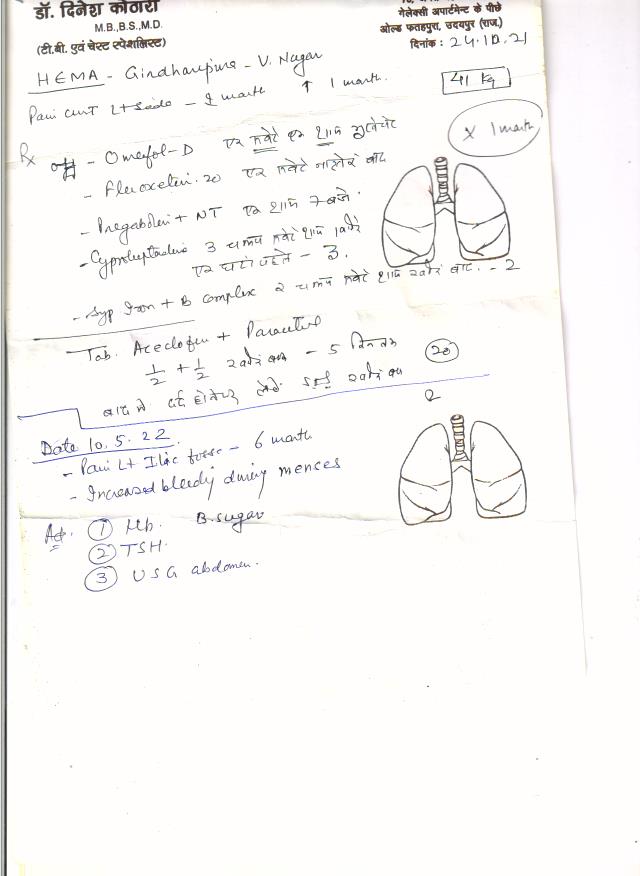 डॉ. दिनेश कोठारी
M.B.,B.S.,M.D.
(टी.बी. एवं चेस्ट स्पेशलिस्ट)
गेलेक्सी अपार्टमेन्ट के पीछे
ओल्ड फतहपुरा, उदयपुर (राज.)
दिनांक : 24.10.21
HEMA - Girdharipura - V. Nagar
41 Kg
Lt side - 1 month ↑ 1 month.
x 1 month
Rx
- Omefol-D एक सवेरे एक शाम
- Fluoxetin 20 एक सवेरे नाश्ते के बाद
- Pregabalin + NT एक शाम 7 बजे.
- Cyproheptadin 3 चम्मच सवेरे शाम
एक घंटा पहले - 3.
- Syp Iron + B complex 2 चम्मच सवेरे शाम खाने के बाद. - 2
Tab. Aceclofen + Paracetml
1/2 + 1/2 खाने के बाद - 5 दिन तक
20
बाद में दर्द होने पर
2
Date 10.5.22.
- Pain Lt Iliac fosse - 6 month
- Increased bleedy during mences
Adv. ① Hb. B.sugar
② TSH.
③ USG abdomen.